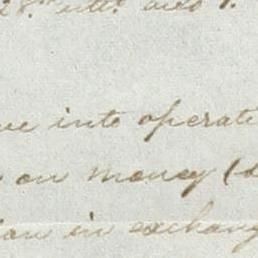 28th ulto. and I
into operati
on money (d
in exchang